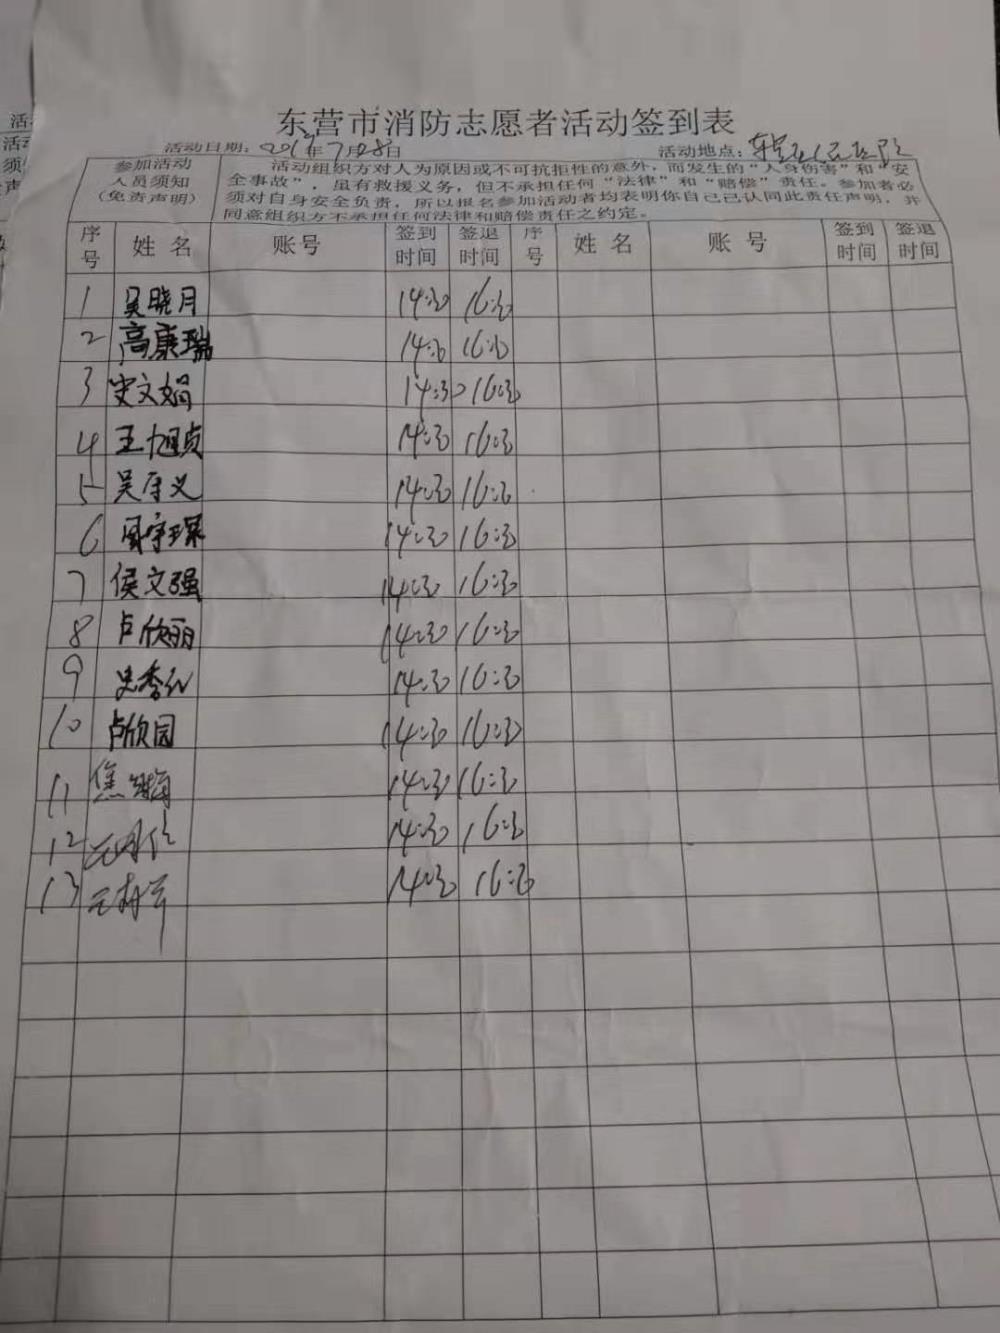 东营市消防志愿者活动签到表
活动日期： 年7月28日 活动地点：东营区人民医院
参加活动人员须知（免责声明）
活动组织方对人为原因或不可抗拒性的意外，而发生的“人身伤害”和“安
全事故”，虽有救援义务，但不承担任何“法律”和“赔偿”责任。参加者必
须对自身安全负责，所以报名参加活动者均表明你自己已认同此责任声明，并
同意组织方不承担任何法律和赔偿责任之约定。
序号 姓名 账号 签到时间 签退时间 序号 姓名 账号 签到时间 签退时间
1 吴晓月 14:30 16:30
2 高康瑞 14:30 16:30
3 史文娟 14:30 16:30
4 王旭贞 14:30 16:30
5 吴守义 14:30 16:30
6 周宇琛 14:30 16:30
7 侯文强 14:30 16:30
8 卢欣丽 14:30 16:30
9 史秀红 14:30 16:30
10 卢欣园 14:30 16:30
11 焦 14:30 16:30
12 14:30 16:30
13 14:30 16:30